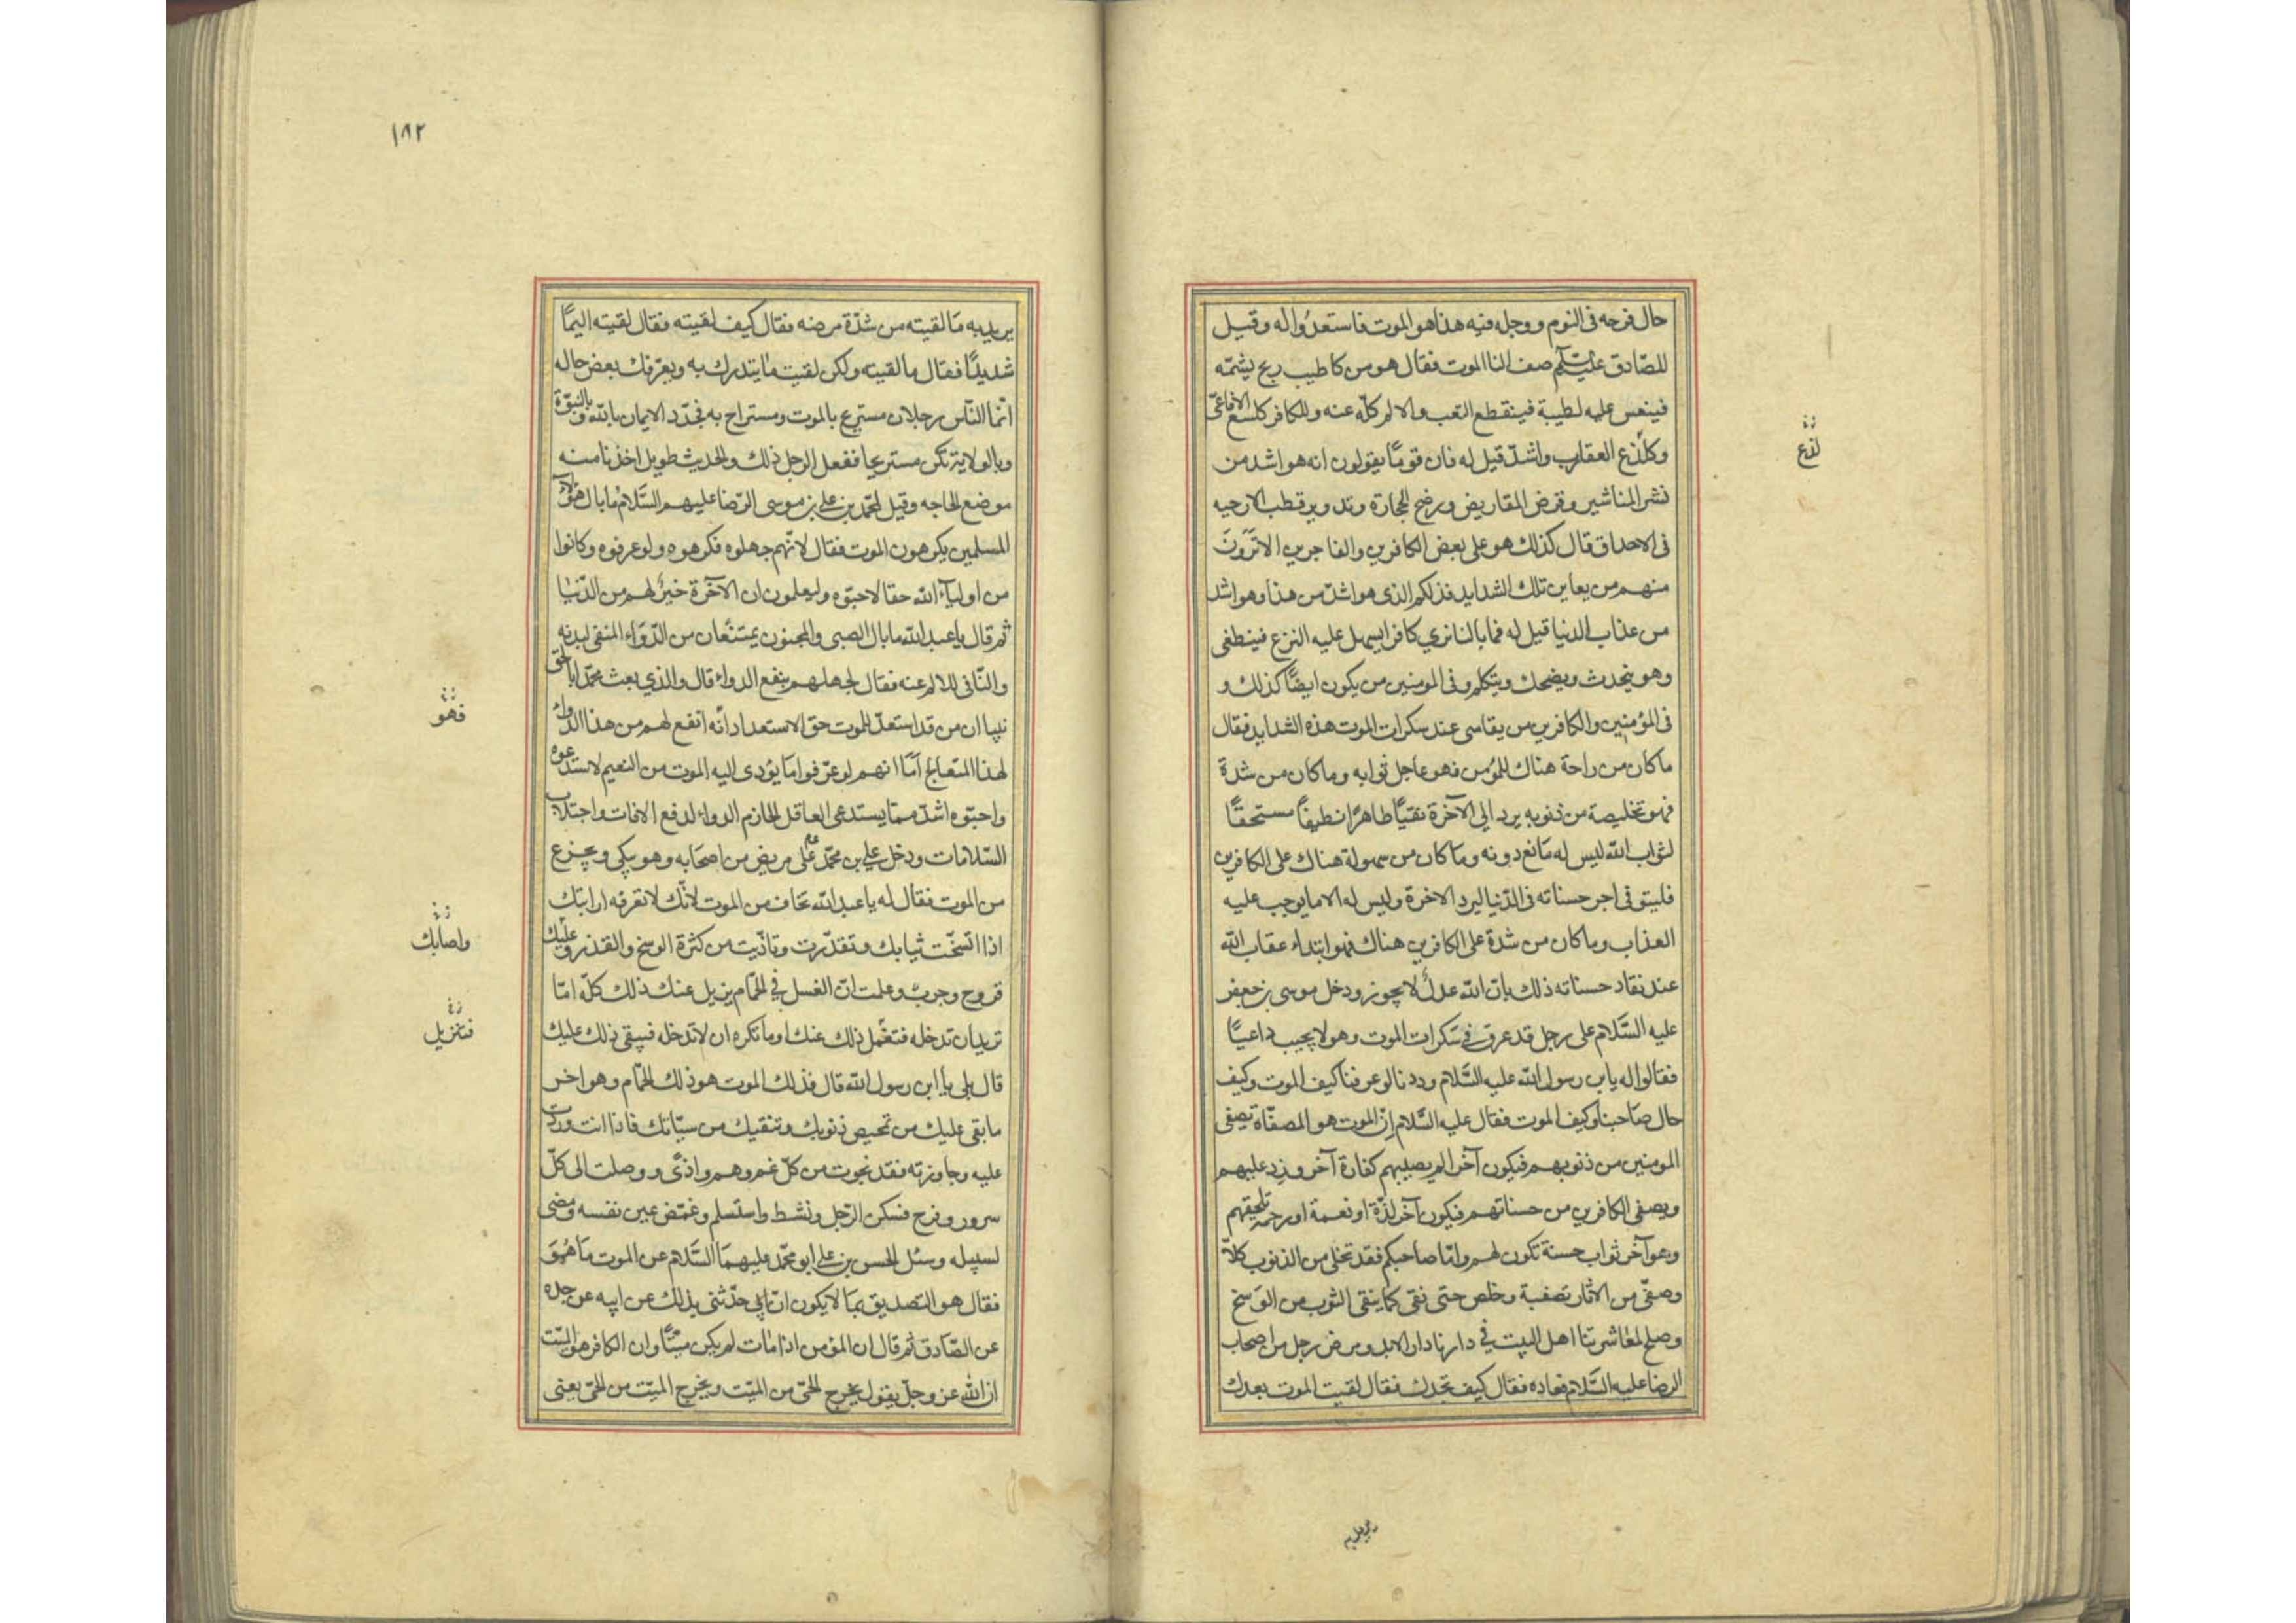 حال فرحه فى النوم ووجله فيه هذا هو الموت فاستعدّوا له وقيل
للصّادق عليه السّلم صف لنا الموت فقال هو من كاطيب ريح يشمّه
فينعس عليه لطيبة فينقطع التعب والالم كلّه عنه وللكافر كلسع الافاعىّ
وكلذع العقارب واشدّ قيل له فان قومًا يقولون انه هو اشد من
نشر المناشير وقرض المقاريض ورضخ الحجارة وتدوير قطب الارحيه
فى الاحداق قال كذلك هو على بعض الكافرين والفاجرين الا تَرَونَ
منهم من يعاين تلك الشدايد فذلكم الذى هو اشدّ من هذا وهو اشد
من عذاب الدنيا قيل له فما بالنا نرى كافرا يسهل عليه النزع فينطفى
وهو يتحدث ويضحك ويتكلم وفى المومنين من يكون ايضًا كذلك و
فى المؤمنين والكافرين من يقاسى عند سكرات الموت هذه الشدايد فقال
ما كان من راحة هناك للمؤمن فهو عاجل ثوابه وما كان من شدة
فهو تخليصة من ذنوبه يرد الى الآخرة نقيًّا طاهرًا نظيفًا مستحقًّا
لثواب الله ليس له مَانع دونه وما كان من سهولة هناك على الكافرين
فليتوفى اجر حسناته فى الدّنيا ليرد الاخرة وليس له الا ما يوجب عليه
العذاب وما كان من شدة على الكافرين هناك فهو ابتداء عقاب الله
عند نفاد حسناته ذلك بانّ الله عدلٌ لا يجوز ودخل موسى بن جعفر
عليه السَّلام على رجل قد عرق فى سَكرات الموت وهو لا يجيب داعيًا
فقالوا له يابن رسول الله عليه السَّلام وددنا لو عرفنا كيف الموت وكيف
حال صَاحبنا وكيف الموت فقال عليه السَّلام انّ الموت هو المصفّاة تصفى
المومنين من ذنوبهم فيكون آخر الم يصيبهم كفارة آخر وزد عليهم
ويصفى الكافرين من حسناتهم فيكون آخر لذّة او نعمة او رحمة تلحقهم
وهو آخر ثواب حسنة تكون لهم وامّا صاحبكم فقد تخلى من الذنوب كلاّ
وصفّى من الآثار تصفية وخلص حتى نقى كما ينقى الثوب من الوَسخ
وصلح لمعَاشرتنا اهل البيت فى دارنا دار الابد ومرض رجل من اصحاب
الرضا عليه السَّلام فعاده فقال كيف تجدك فقال لقيت الموت بعدك
لذع
يريد به
١٨٢
يريد به مَا لقيته من شدّة مرضه فقال كيف لقيته فقال لقيته اليمًا
شديدًا فقال ما لقيته ولكن لقيت مَا يتدرك به ويعرّفك بعض حاله
انّما النّاس رجلان مستريح بالموت ومستراح به فجدّد الايمان بالله وبالنبوّة
وبالولاية تكن مستريحا ففعل الرجل ذلك والحديث طويل اخذنا منه
موضع الحاجه وقيل لمحمّد بن على بن موسى الرّضا عليهم السَّلامُ ما بال هؤلاء
المسلمين يكرهون الموت فقال لانّهم جهلوه فكرهوه ولو عرفوه وكانوا
من اوليآء الله حقا لاحبّوه وليعلمون ان الآخرة خيرٌ لهم من الدّنيا
ثم قال يا عبد الله ما بال الصبى والمجنون يمتنعان من الدّوَاء المنقى لبدنه
والنّافى للالم عنه فقال لجهلهم بنفع الدواء قال والذي بعث محمّدا بالحق
نبيا ان من قد استعدّ للموت حق الاستعداد انّه انفع لهم من هذا الدواء
لهذا المتعالج امّا انهم لو عرفوا مَا يؤدى اليه الموت من النعيم لاستدعوه
واحبّوه اشدّ ممّا يستدعى العاقل الحازم الدواء لدفع الافات واجتلاب
السّلامات ودخل على بن محمّد ع على مريض من اصحَابه وهو يبكى ويجزع
من الموت فقال له يا عبد الله تخاف من الموت لانّك لا تعرفه ارايتك
اذا اتسخّت ثيابك وتقذّرت وتاذّيت من كثرة الوسخ والقذر وعليك
قروح وجرب وعلمت انّ الغسل فى الحمّام يزيل عنك ذلك كلّه امّا
تريد ان تدخله فتغسل ذلك عنك او ما تكره ان لا تدخله فيبقى ذلك عليك
قال بلى يا ابن رسول الله قال فذلك الموت هو ذلك الحمّام وهو اخر
ما بقى عليك من تمحيص ذنوبك وتنقيك من سيّاتك فاذا انت وردت
عليه وجاوزته فقد نجوت من كلّ غم وهم واذًى ووصلت الى كلّ
سرور وفرح فسكن الرّجل ونشط واستسلم وغمّض عين نفسه ومضى
لسبيله وسئل الحسن بن على ابو محمّد عليهمَا السَّلام عن الموت مَا هُوَ
فقال هو التصديق بمَا لا يكون انّ ابى حدّثنى بذلك عن ابيه عن جده
عن الصّادق ثم قال ان المؤمن اذا مَات لم يكن ميّتًا وان الكافر هو الميّت
ان الله عز وجلّ يقول يخرج الحىّ من الميّت ويخرج الميّت من الحىّ يعنى
فهو
واصابك
فتزيل